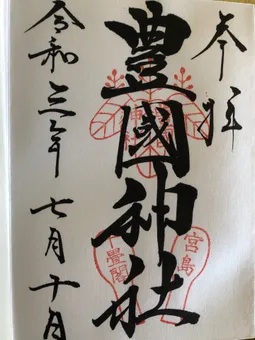 奉拝
豊國神社
宮島
千畳閣
令和三年
七月十日